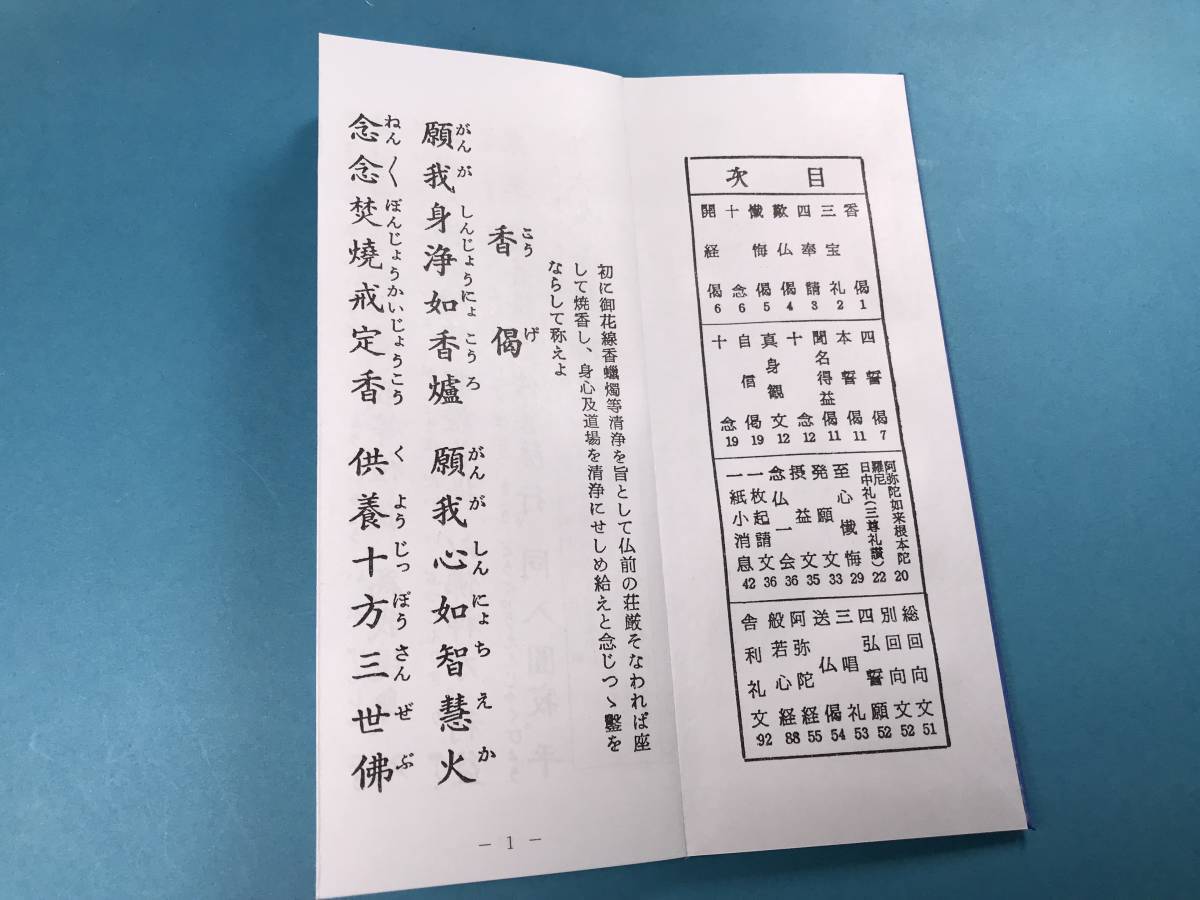 目次
香偈1
三宝礼2
四奉請3
歎仏偈4
懺悔偈5
十念6
開経偈6
四誓偈7
本誓偈11
聞名得益偈11
十念12
真身観文12
自信偈19
十念19
阿弥陀如来根本陀
羅尼20
日中礼(三尊礼讃)22
至心懺悔29
発願文33
摂益文35
念仏一会36
一枚起請文36
一紙小消息42
総回向文51
別回向文52
四弘誓願52
三唱礼53
送仏偈54
阿弥陀経55
般若心経88
舎利礼文92
初に御花線香蠟燭等清浄を旨として仏前の荘厳そなわれば座
して焼香し、身心及道場を清浄にせしめ給えと念じつゝ鏧を
ならして称えよ
こうげ
香偈
がんが しんじょうにょ こうろ がんが しん にょ ち え か
願我身浄如香爐 願我心如智慧火
ねん〱ぼんじょうかいじょうこう く よう じっ ぽう さん ぜ ぶ
念念焚燒戒定香 供養十方三世佛
− 1 −